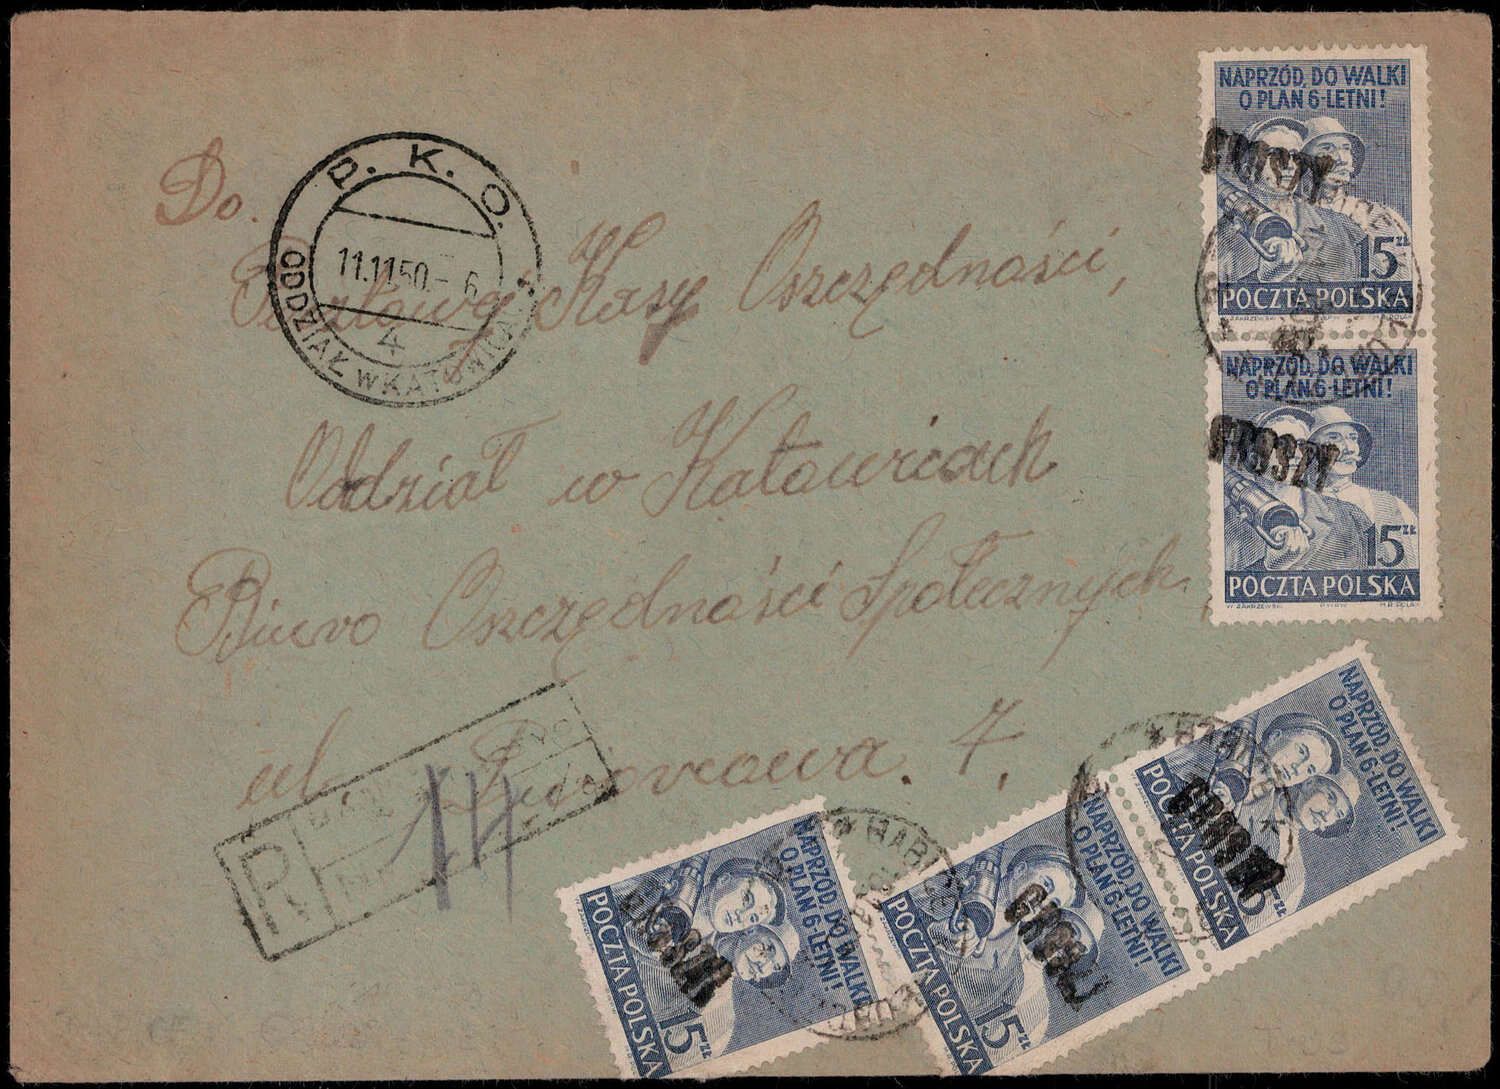 Do.
Pocztowej Kasy Oszczędności,
Oddział w Katowicach
Biuro Oszczędności Społecznych
ul. 7.
P. K. O.
11.11.50.- 6
4
ODDZIAŁ W KATOWICACH
R
14
NAPRZÓD, DO WALKI
O PLAN 6-LETNI!
GROSZY
15 ZŁ
POCZTA POLSKA
W. ZAKRZEWSKI
NAPRZÓD, DO WALKI
O PLAN 6-LETNI!
GROSZY
15 ZŁ
POCZTA POLSKA
W. ZAKRZEWSKI
NAPRZÓD, DO WALKI
O PLAN 6-LETNI!
GROSZY
15 ZŁ
POCZTA POLSKA
NAPRZÓD, DO WALKI
O PLAN 6-LETNI!
GROSZY
15 ZŁ
POCZTA POLSKA
NAPRZÓD, DO WALKI
O PLAN 6-LETNI!
GROSZY
15 ZŁ
POCZTA POLSKA